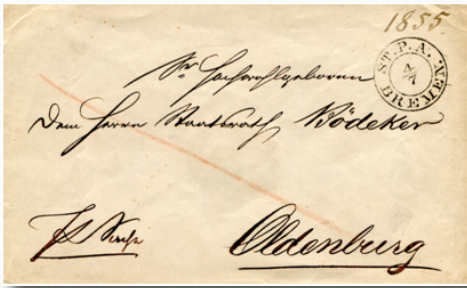 1855.
ST. P. A. BREMEN
4/7
Sr Hochwohlgeboren
Dem Herrn Staatsrath Bödeker
Oldenburg